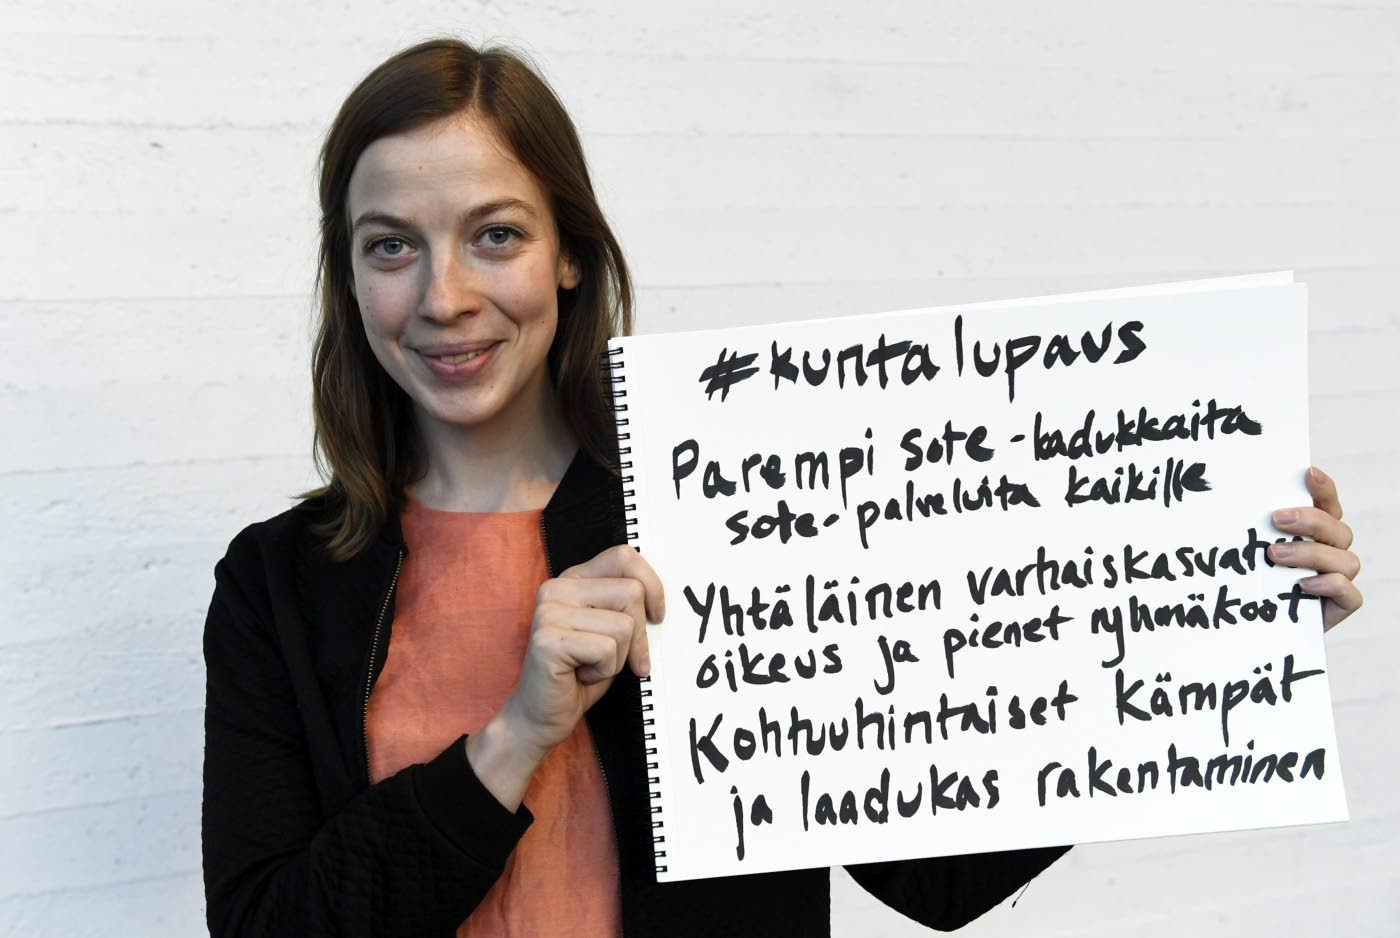 #kuntalupaus
Parempi sote - laadukkaita
sote-palveluita kaikille
Yhtäläinen varhaiskasvatus
oikeus ja pienet ryhmäkoot
Kohtuuhintaiset kämpät
ja laadukas rakentaminen